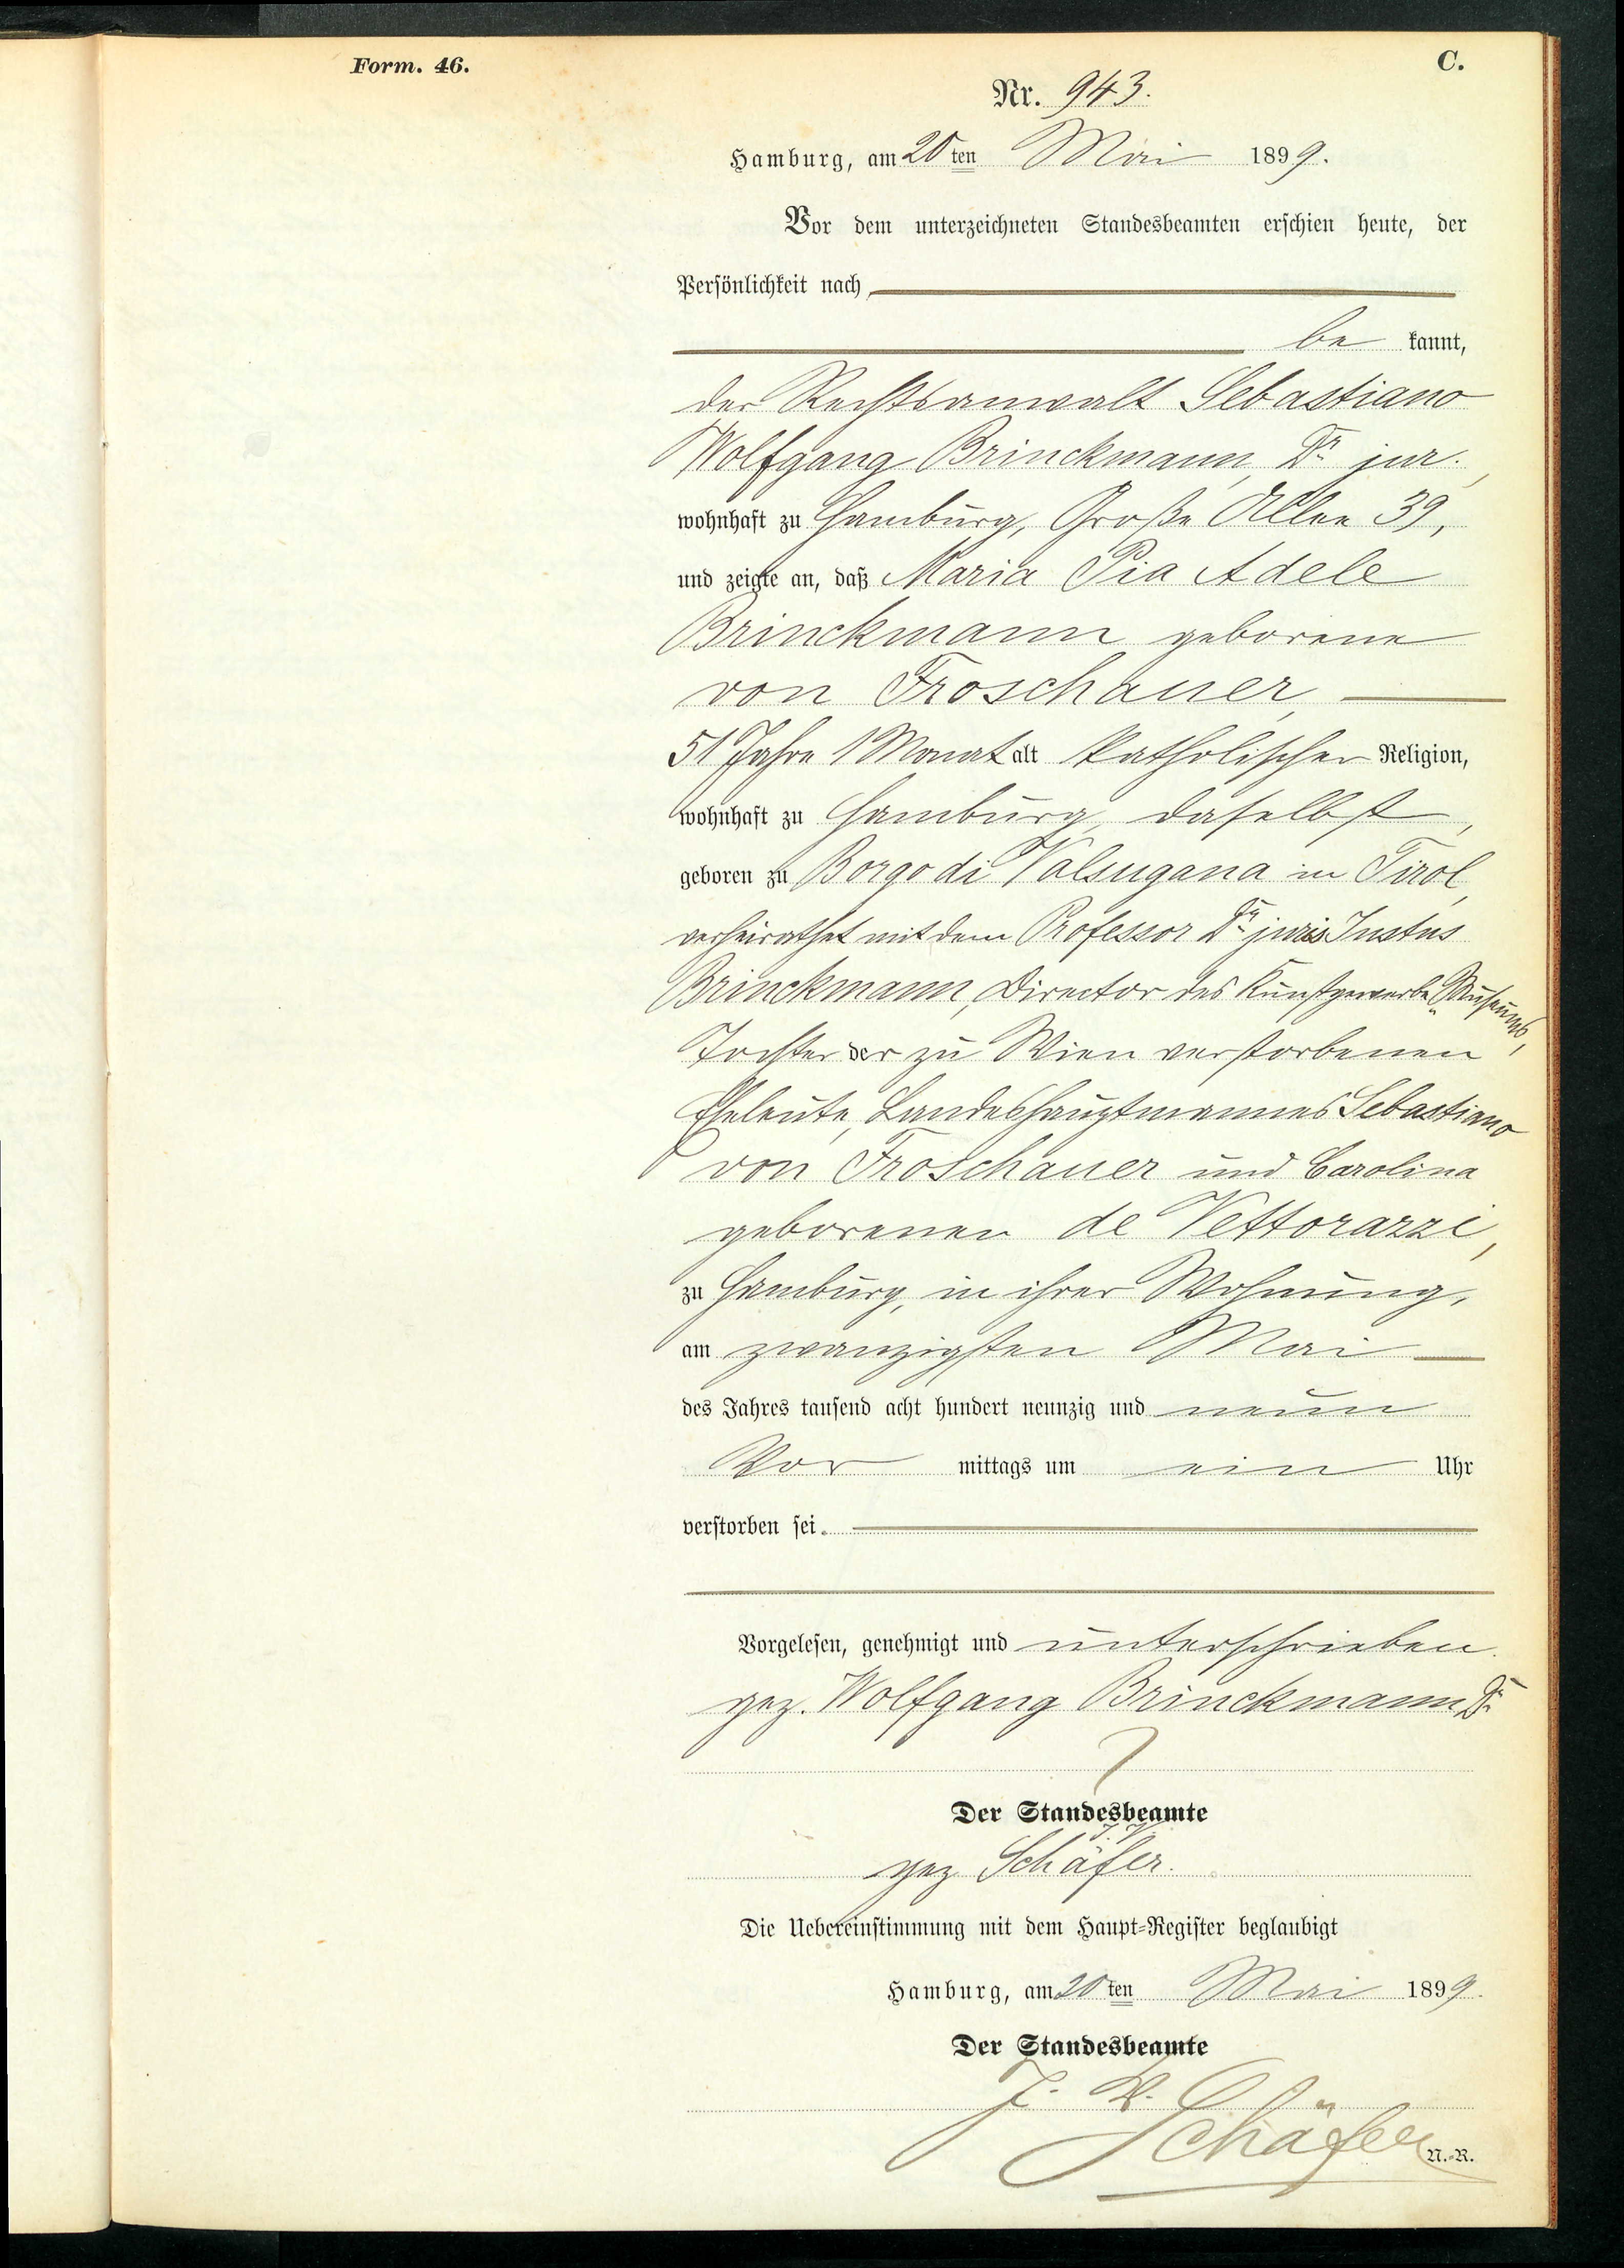 Form. 46.
C.
Nr. 943.
Hamburg, am 20 ten Mai 1899.
Vor dem unterzeichneten Standesbeamten erschien heute, der
Persönlichkeit nach
be kannt,
der Rechtsanwalt Sebastiano
Wolfgang Brinckmann, Dr. jur.,
wohnhaft zu Hamburg, Große Allee 39,
und zeigte an, daß Maria Pia Adele
Brinckmann geborene
von Froschauer,
51 Jahre 1 Monat alt katholischer Religion,
wohnhaft zu Hamburg, daselbst,
geboren zu Borgo di Valsugana in Tirol,
verheirathet mit dem Professor Dr. juris Justus
Brinckmann, Director des Kunstgewerbe-Museums,
Tochter der zu Wien verstorbenen
Eheleute, Landeshauptmannes Sebastiano
von Froschauer und Carolina
geborenen de Vettorazzi,
zu Hamburg, in ihrer Wohnung,
am zwanzigsten Mai
des Jahres tausend acht hundert neunzig und neun
Vor mittags um ein Uhr
verstorben sei.
Vorgelesen, genehmigt und unterschrieben.
gez. Wolfgang Brinckmann Dr.
Der Standesbeamte
gez. Schäfer.
Die Uebereinstimmung mit dem Haupt-Register beglaubigt
Hamburg, am 20 ten Mai 1899.
Der Standesbeamte
J. V.
Schäfer
N.-R.